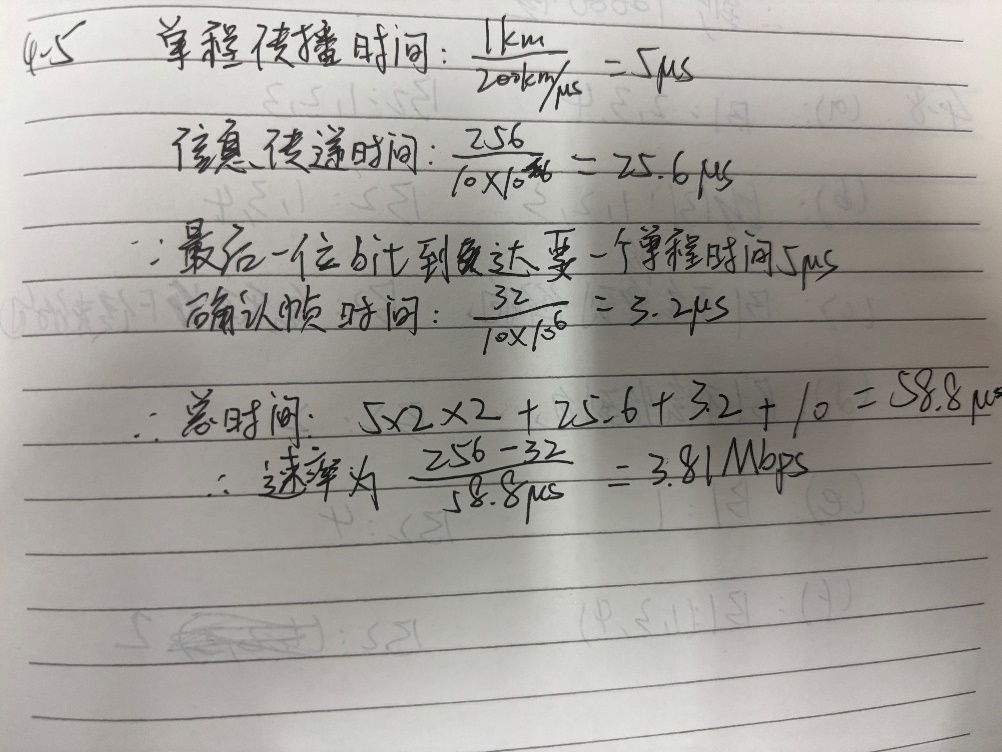 4.5 单程传播时间: 1km / 200km/μs = 5μs
信息传递时间: 256 / 10×10^6 = 25.6μs
∵最后一位bit到达要一个单程时间5μs
确认帧时间: 32 / 10×10^6 = 3.2μs
∴总时间: 5×2×2+25.6+3.2+10=58.8μs
∴速率为 256-32 / 58.8μs = 3.81Mbps